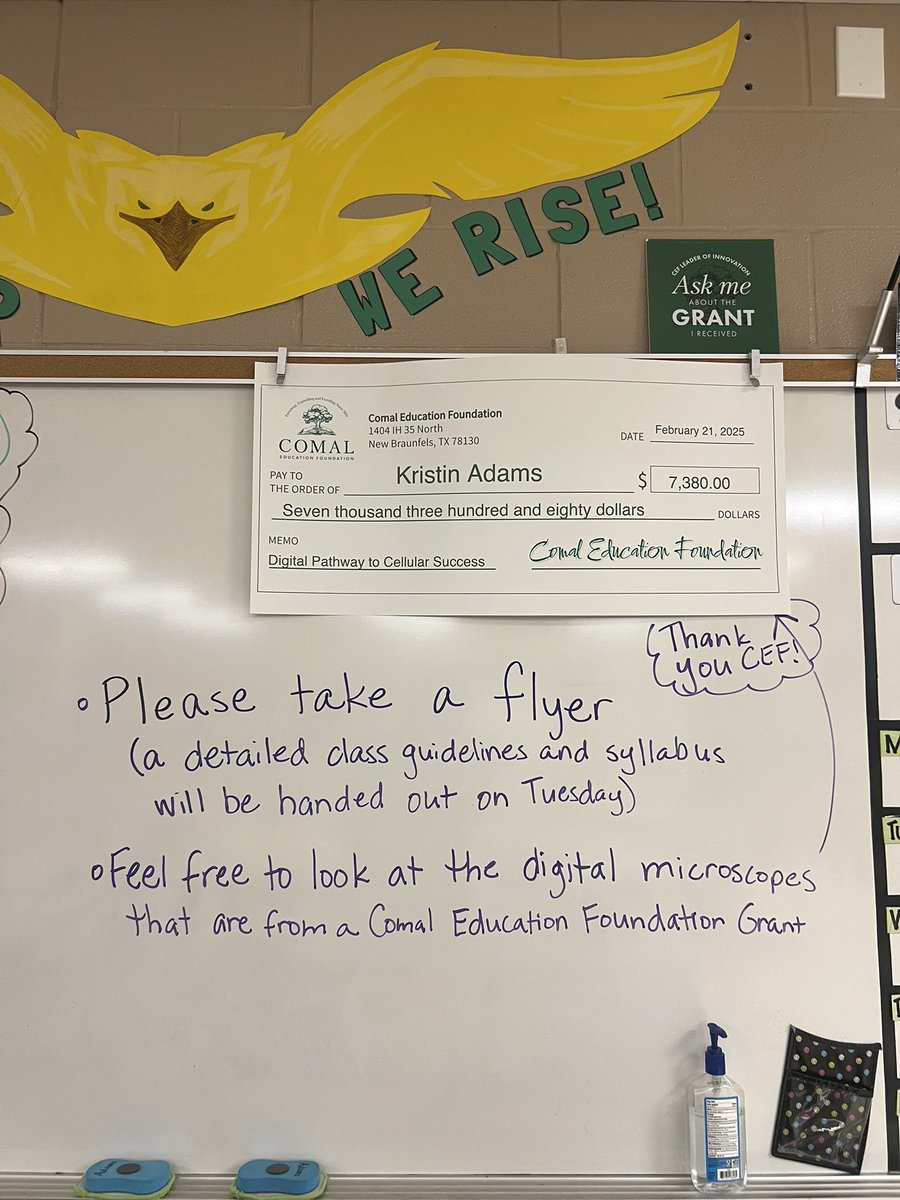 WE RISE!
CEF LEADER OF INNOVATION
Ask me
ABOUT THE
GRANT
I RECEIVED
COMAL
EDUCATION FOUNDATION
Comal Education Foundation
1404 IH 35 North
New Braunfels, TX 78130
DATE February 21, 2025
PAY TO
THE ORDER OF Kristin Adams $ 7,380.00
Seven thousand three hundred and eighty dollars DOLLARS
MEMO
Digital Pathway to Cellular Success Comal Education Foundation
Thank
you CEF!
• Please take a flyer
(a detailed class guidelines and syllabus
will be handed out on Tuesday)
• Feel free to look at the digital microscopes
that are from a Comal Education Foundation Grant